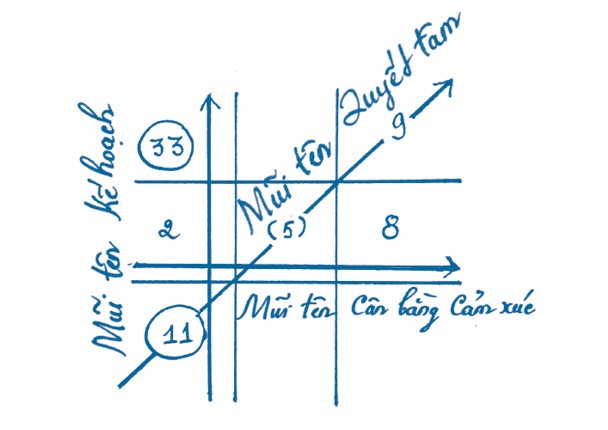 Mũi tên Kế hoạch
Mũi tên Quyết tâm
33
9
2
(5)
8
11
Mũi tên Cân bằng Cảm xúc